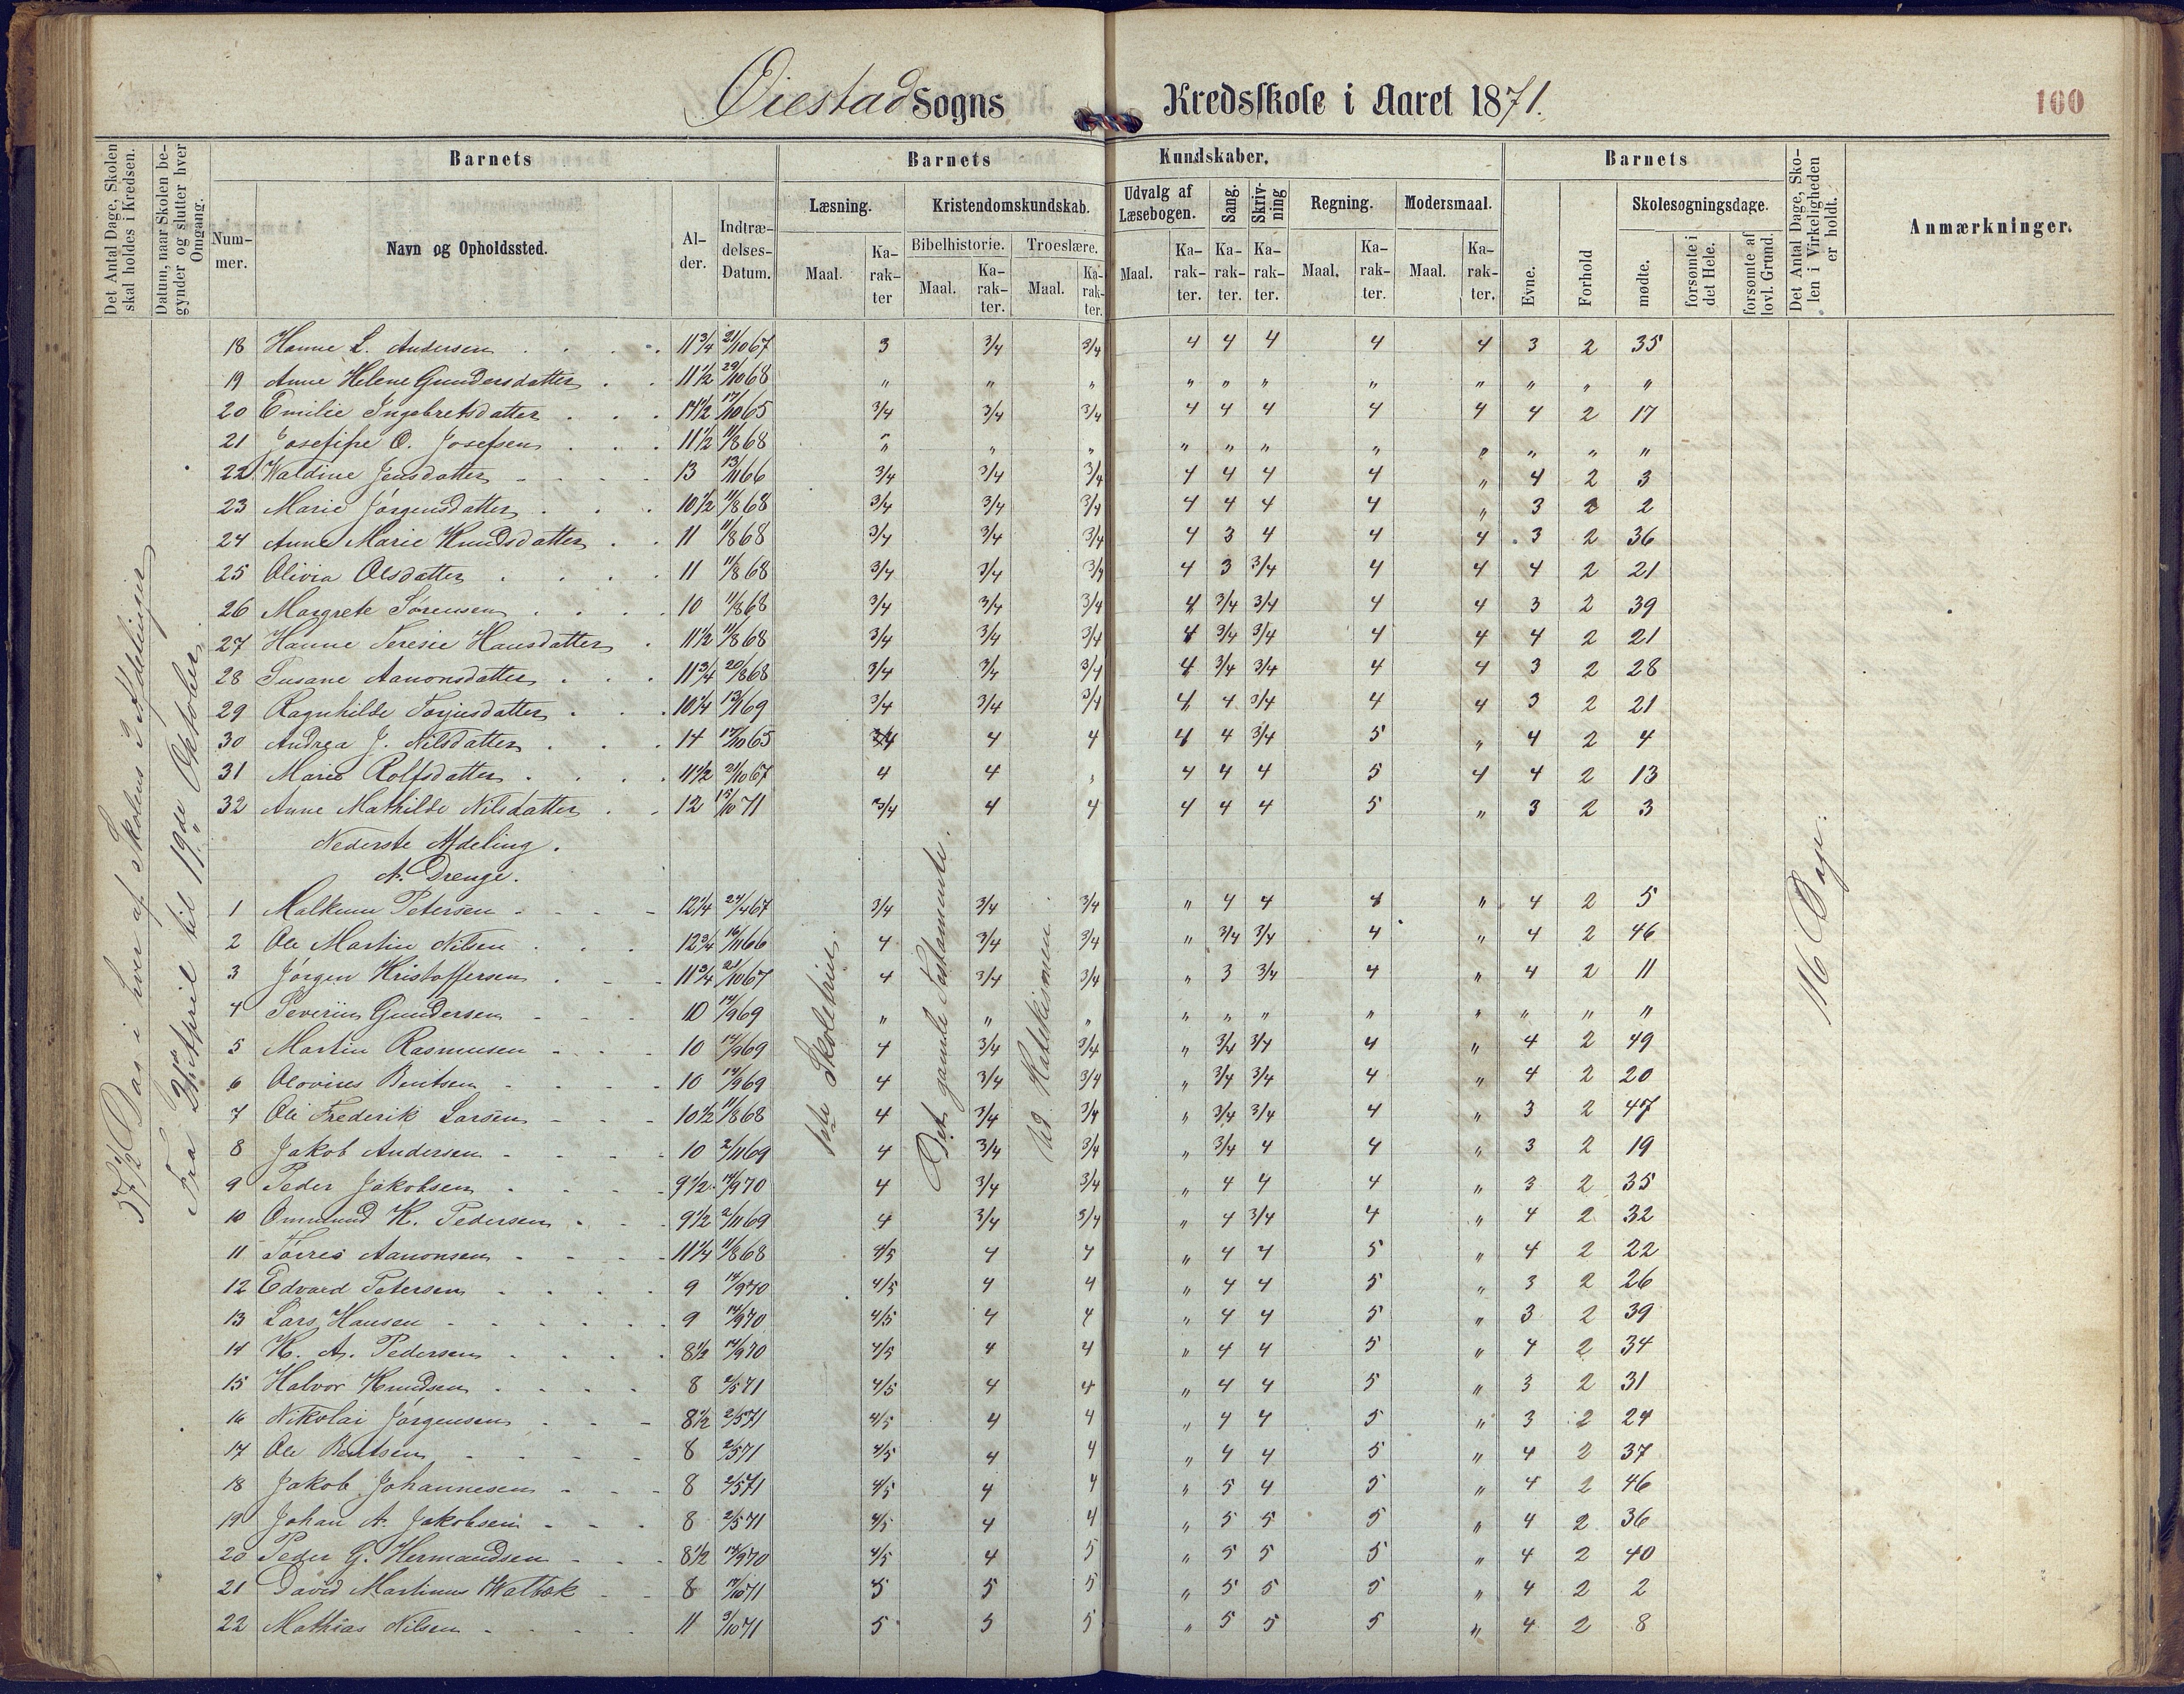 Øiestad Sogns Kredsskole i Aaret 1871.
100
Det Antal Dage, Skolen skal holdes i Kredsen.
Datum, naar Skolen begynder og slutter hver Omgang.
Barnets
Nummer.
Navn og Opholdssted.
Alder.
Indtrædelses-Datum.
Barnets Kundskaber.
Læsning.
Maal.
Karakter
Kristendomskundskab.
Bibelhistorie.
Maal.
Karakter.
Troeslære.
Maal.
Karakter.
Udvalg af Læsebogen.
Maal.
Karakter.
Sang.
Karakter.
Skrivning
Karakter.
Regning.
Maal.
Karakter.
Modersmaal.
Maal.
Karakter.
Barnets
Evne.
Forhold
Skolesøgningsdage.
mødte.
forsømte i det Hele.
forsømte af lovl. Grund.
Det Antal Dage, Skolen i Virkeligheden er holdt.
Anmærkninger.
57 1/2 Dag i hver af Skolens 2 Afdelinger
Fra 21de April til 19de Oktober.
18 Hanne L. Andersen 11 3/4 21/10 67 3 3/4 3/4 4 4 4 4 4 3 2 35
19 Anne Helene Gundersdatter 11 1/2 29/10 68 " " " " " " " " " " "
20 Emilie Ingebretsdatter 14 1/2 17/10 65 3/4 3/4 3/4 4 4 4 4 4 4 2 17
21 Josefine O. Josefsen 11 1/2 11/8 68 " " " " " " " " " " "
22 Waldine Jensdatter 13 13/11 66 3/4 3/4 3/4 4 4 4 4 " 4 2 3
23 Marie Jørgensdatter 10 1/2 11/8 68 3/4 3/4 3/4 4 4 4 4 " 3 2 2
24 Anne Marie Knudsdatter 11 11/8 68 3/4 3/4 3/4 4 3 4 4 4 3 2 36
25 Olivia Olsdatter 11 11/8 68 3/4 3/4 3/4 4 3 3/4 4 4 4 2 21
26 Margrete Sørensen 10 11/8 68 3/4 3/4 3/4 4 3/4 3/4 4 4 3 2 39
27 Hanne Teresie Hansdatter 11 1/2 11/8 68 3/4 3/4 3/4 4 3/4 3/4 4 4 4 2 21
28 Susane Aanonsdatter 11 3/4 20/8 68 3/4 3/4 3/4 4 3/4 3/4 4 4 3 2 28
29 Ragnhilde Torjusdatter 10 1/4 13/1 69 3/4 3/4 3/4 4 4 3/4 4 4 3 2 21
30 Andrea J. Nilsdatter 14 17/10 65 3/4 4 4 4 4 3/4 5 " 4 2 4
31 Marie Rolfsdatter 11 1/2 21/10 67 4 4 " 4 4 4 5 4 4 2 13
32 Anne Mathilde Nilsdatter 12 13/10 71 3/4 4 4 4 4 4 5 " 3 2 3
Nederste Afdeling.
A. Drenge.
1ste Skoletrin.
Det gamle Testamente.
Ud Katekismen.
116 Dage.
1 Malkum Petersen 12 1/4 24/4 67 3/4 3/4 3/4 " 4 4 4 " 4 2 5
2 Ole Martin Nilsen 12 3/4 16/11 66 4 3/4 3/4 " 3/4 3/4 4 " 4 2 46
3 Jørgen Kristoffersen 11 3/4 21/10 67 4 3/4 3/4 " 3 3/4 4 " 4 2 11
4 Severin Gundersen 10 14/9 69 " " " " " " " " " " "
5 Martin Rasmusen 10 14/9 69 4 3/4 3/4 " 3/4 3/4 4 " 4 2 49
6 Olovius Bentsen 10 14/9 69 4 3/4 3/4 " 3/4 3/4 4 " 4 2 20
7 Ole Frederik Larsen 10 1/2 11/8 68 4 3/4 3/4 " 3/4 3/4 4 " 3 2 47
8 Jakob Andersen 10 2/11 69 4 3/4 3/4 " 3/4 4 4 " 3 2 19
9 Peder Jakobsen 9 1/2 14/9 70 4 3/4 3/4 " 4 4 4 " 3 2 35
10 Ommund K. Pedersen 9 1/2 2/11 69 4 3/4 3/4 " 4 3/4 4 " 4 2 32
11 Torres Aanonsen 11 1/4 11/8 68 4/5 4 4 " 4 4 5 " 4 2 22
12 Edvard Petersen 9 14/9 70 4/5 4 4 " 4 4 5 " 3 2 26
13 Lars Hansen 9 14/9 70 4/5 4 4 " 4 4 5 " 3 2 39
14 K. A. Pedersen 8 1/2 14/9 70 4/5 4 4 " 4 4 5 " 4 2 34
15 Halvor Knudsen 8 2/5 71 4/5 4 4 " 4 4 5 " 3 2 31
16 Nikolai Jørgensen 8 1/2 2/5 71 4/5 4 4 " 4 4 5 " 3 2 24
17 Ole Bentsen 8 2/5 71 4/5 4 4 " 4 4 5 " 4 2 37
18 Jakob Johannesen 8 2/5 71 4/5 4 4 " 5 4 5 " 4 2 46
19 Johan A. Jakobsen 8 2/5 71 4/5 4 4 " 5 5 5 " 4 2 36
20 Peder G. Hermandsen 8 1/2 14/9 70 4/5 4 5 " 5 5 5 " 4 2 40
21 David Martinus Walbæk 8 17/10 71 5 5 5 " 5 5 5 " 4 2 2
22 Mathias Nilsen 11 3/10 71 5 5 5 " 5 5 5 " 4 2 8